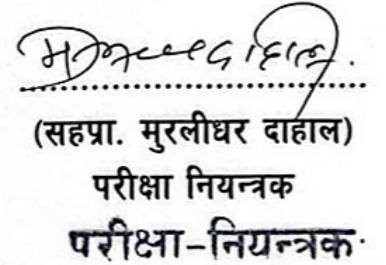 (सहप्रा. मुरलीधर दाहाल)
परीक्षा नियन्त्रक
परीक्षा-नियन्त्रक